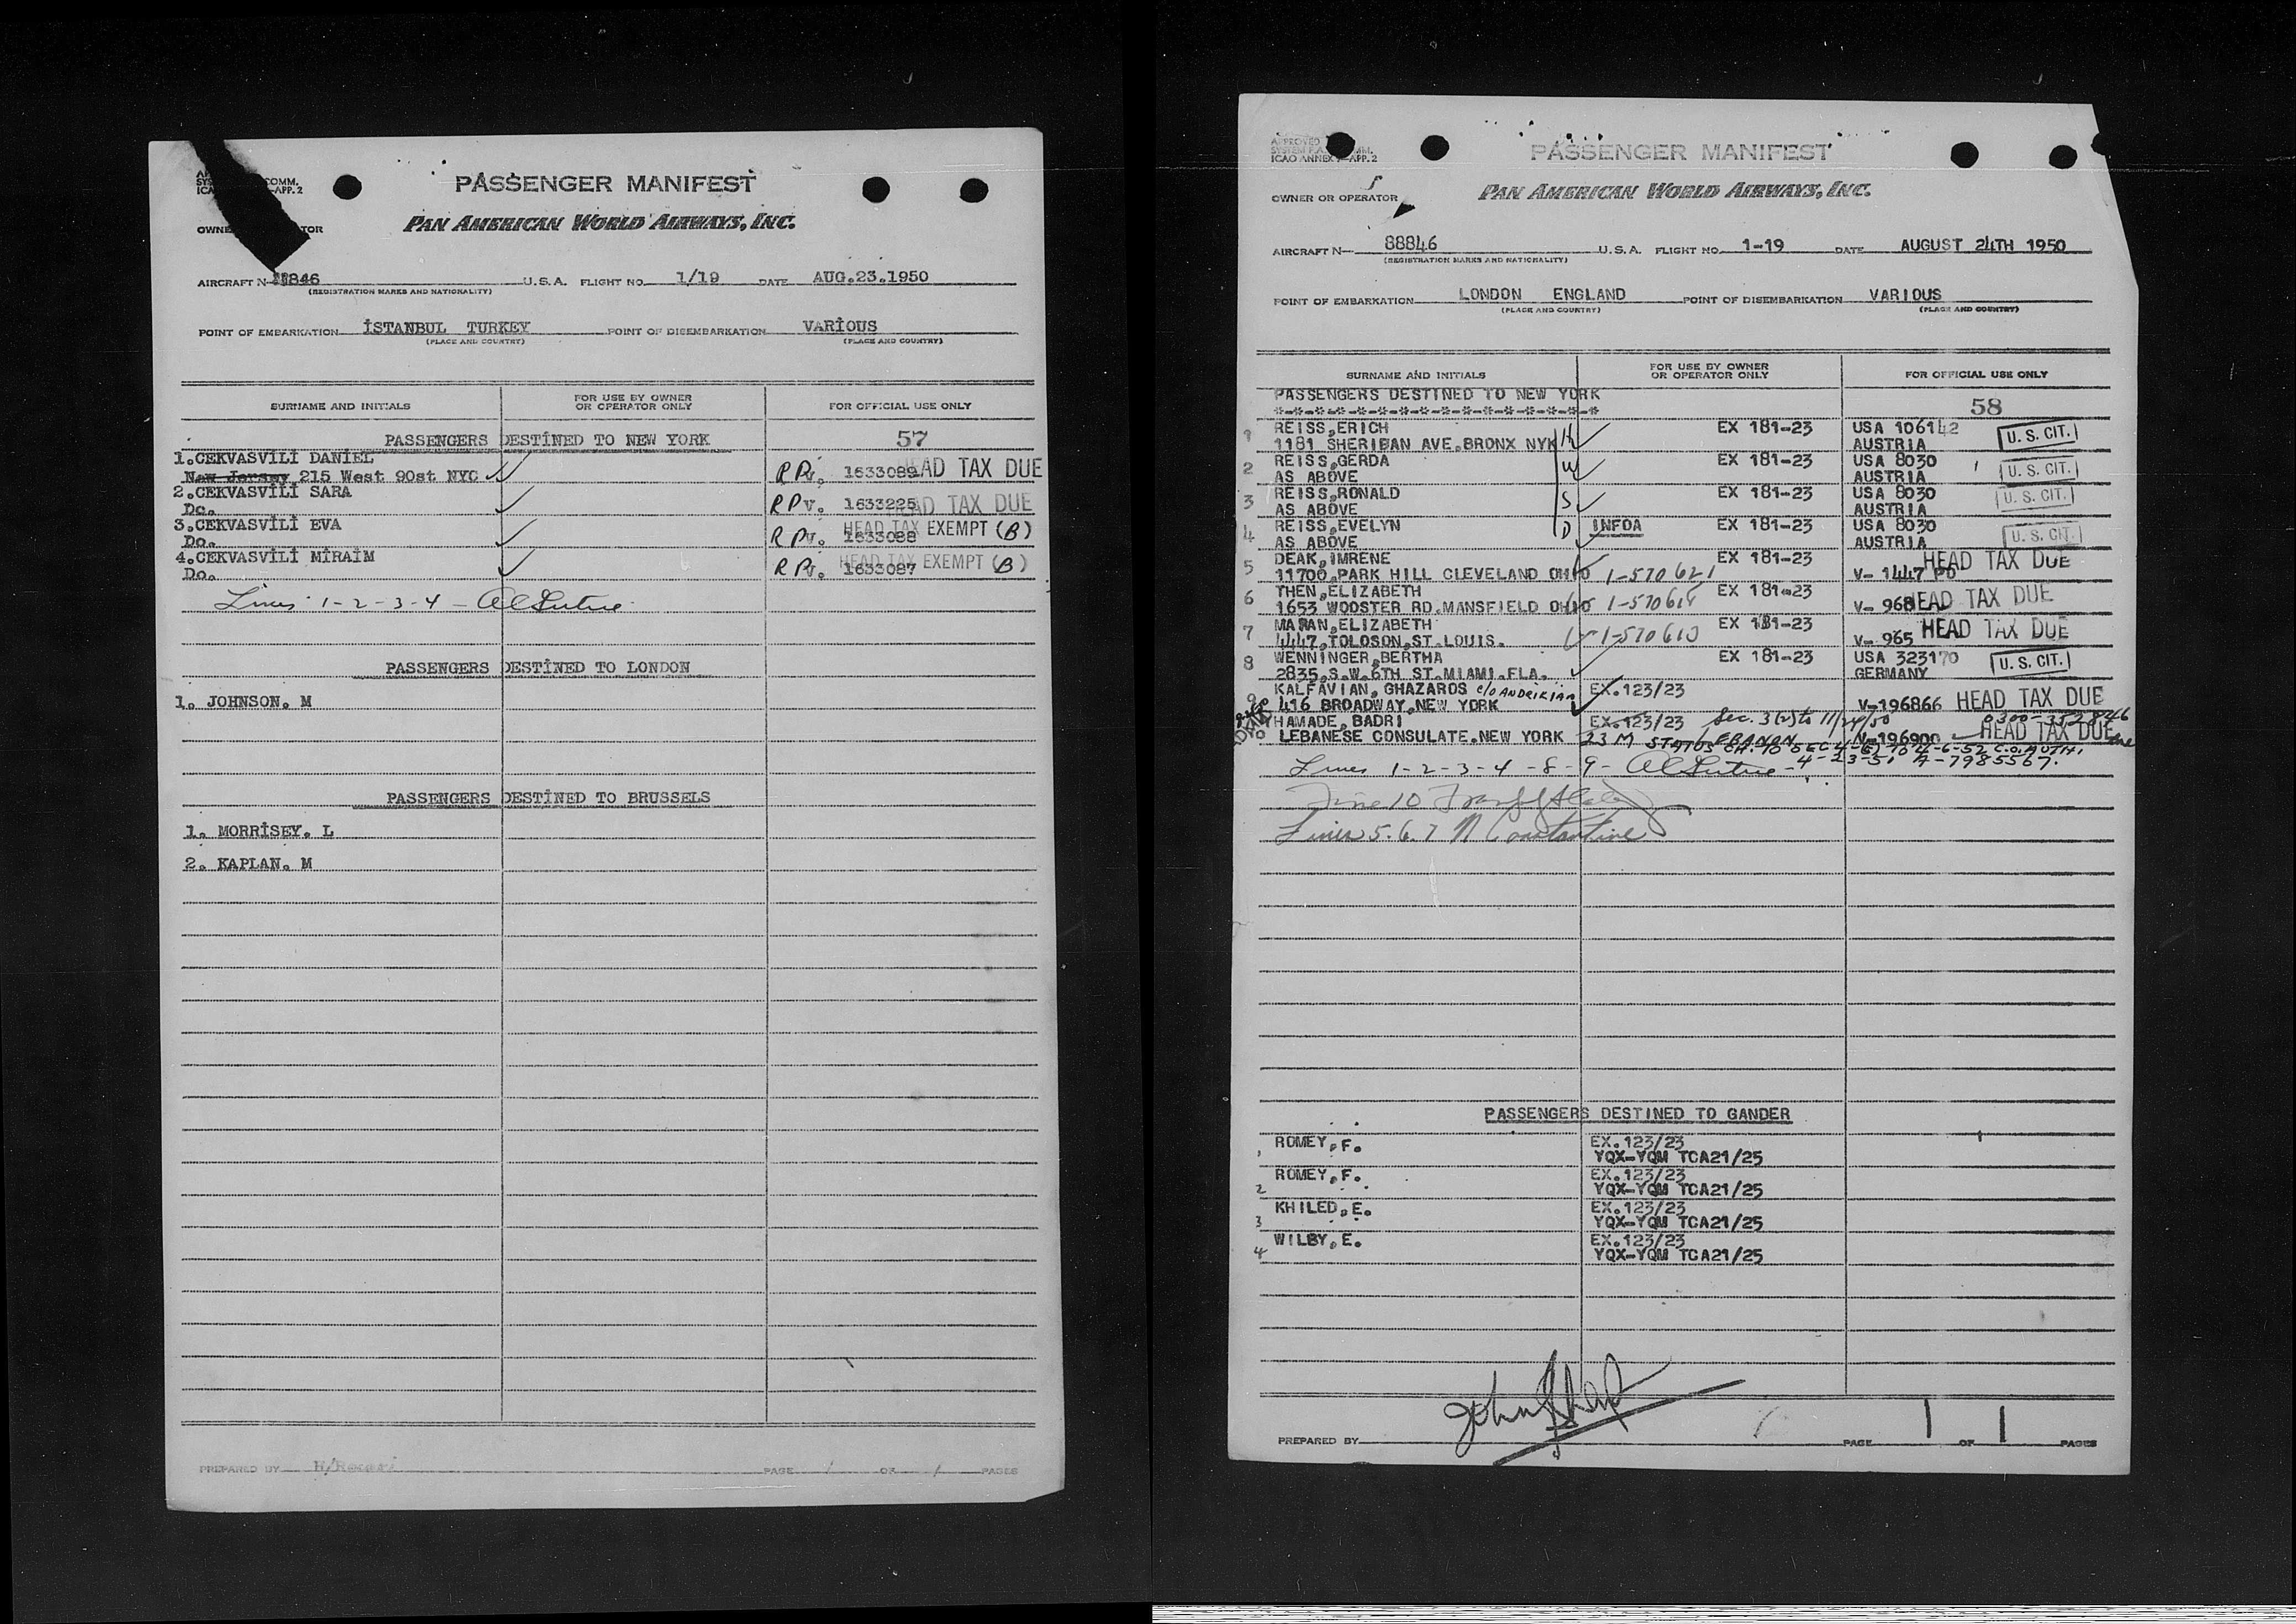 COMM.
-APP. 2
PASSENGER MANIFEST
PAN AMERICAN WORLD AIRWAYS, INC.
AIRCRAFT N- 846 U.S.A. FLIGHT NO. 1/19 DATE AUG.23.1950
(REGISTRATION MARKS AND NATIONALITY)
POINT OF EMBARKATION İSTANBUL TURKEY POINT OF DISEMBARKATION VARİOUS
(PLACE AND COUNTRY) (PLACE AND COUNTRY)
SURNAME AND INITIALS FOR USE BY OWNER OR OPERATOR ONLY FOR OFFICIAL USE ONLY
PASSENGERS DESTİNED TO NEW YORK 57
1.CEKVASVİLİ DANİEL
New Jersey 215 West 90st NYC R Pv. 1633089 HEAD TAX DUE
2.CEKVASVİLİ SARA
Do. R Pv. 1633225 HEAD TAX DUE
3.CEKVASVİLİ EVA
Do. R Pv. 1633088 HEAD TAX EXEMPT (B)
4.CEKVASVİLİ MİRAİM
Do. R Pv. 1633087 HEAD TAX EXEMPT (B)
Lines 1-2-3-4 -
PASSENGERS DESTİNED TO LONDON
1. JOHNSON. M
PASSENGERS DESTİNED TO BRUSSELS
1. MORRİSEY. L
2. KAPLAN. M
PREPARED BY PAGE 1 OF 1 PAGES
APPROVED
ICAO ANNEX APP. 2
PASSENGER MANIFEST
PAN AMERICAN WORLD AIRWAYS, INC.
OWNER OR OPERATOR
AIRCRAFT N- 88846 U.S.A. FLIGHT NO. 1-19 DATE AUGUST 24TH 1950
(REGISTRATION MARKS AND NATIONALITY)
POINT OF EMBARKATION LONDON ENGLAND POINT OF DISEMBARKATION VARIOUS
(PLACE AND COUNTRY) (PLACE AND COUNTRY)
SURNAME AND INITIALS FOR USE BY OWNER OR OPERATOR ONLY FOR OFFICIAL USE ONLY
PASSENGERS DESTINED TO NEW YORK
*-*-*-*-*-*-*-*-*-*-*-*-*-*-*-*-* 58
1 REISS,ERICH EX 181-23 USA 106142 U. S. CIT.
1181 SHERIBAN AVE.BRONX NYK H AUSTRIA
2 REISS,GERDA W EX 181-23 USA 8030 U. S. CIT.
AS ABOVE AUSTRIA
3 REISS,RONALD S EX 181-23 USA 8030 U. S. CIT.
AS ABOVE AUSTRIA
4 REISS,EVELYN D INFOA EX 181-23 USA 8030 U. S. CIT.
AS ABOVE AUSTRIA
5 DEAK,IMRENE EX 181-23 HEAD TAX DUE
11700,PARK HILL CLEVELAND OHIO 1-570621 V- 1447 PD
6 THEN,ELIZABETH EX 181-23 HEAD TAX DUE
1653 WOOSTER RD.MANSFIELD OHIO V- 968
7 MARAN,ELIZABETH EX 181-23 HEAD TAX DUE
4447,TOLOSON,ST.LOUIS. 1-570613 V- 965
8 WENNINGER,BERTHA EX 181-23 USA 323170 U. S. CIT.
2835,S.W.6TH ST.MIAMI.FLA. GERMANY
9 KALFAVIAN, GHAZAROS c/o ANDRIKIAN EX.123/23
416 BROADWAY,NEW YORK V-196866 HEAD TAX DUE
HAMADE, BADRI EX.123/23 Sec. 3(2) to 11/24/50 0300-352846
LEBANESE CONSULATE.NEW YORK 23 M LEBANON V-196900 HEAD TAX DUE
STATUS CH. TO SEC 4-(E) TO 4-6-52 C.O. AUTH.
Lines 1-2-3-4-8-9- 4-23-51 A-7985567.
Line 10
Lines 5.6.7 N Constantine
PASSENGERS DESTINED TO GANDER
1 ROMEY,F. EX.123/23
YQX-YQM TCA21/25
2 ROMEY,F. EX.123/23
YQX-YQM TCA21/25
3 KHILED,E. EX.123/23
YQX-YQM TCA21/25
4 WILBY,E. EX.123/23
YQX-YQM TCA21/25
PREPARED BY PAGE 1 OF 1 PAGES